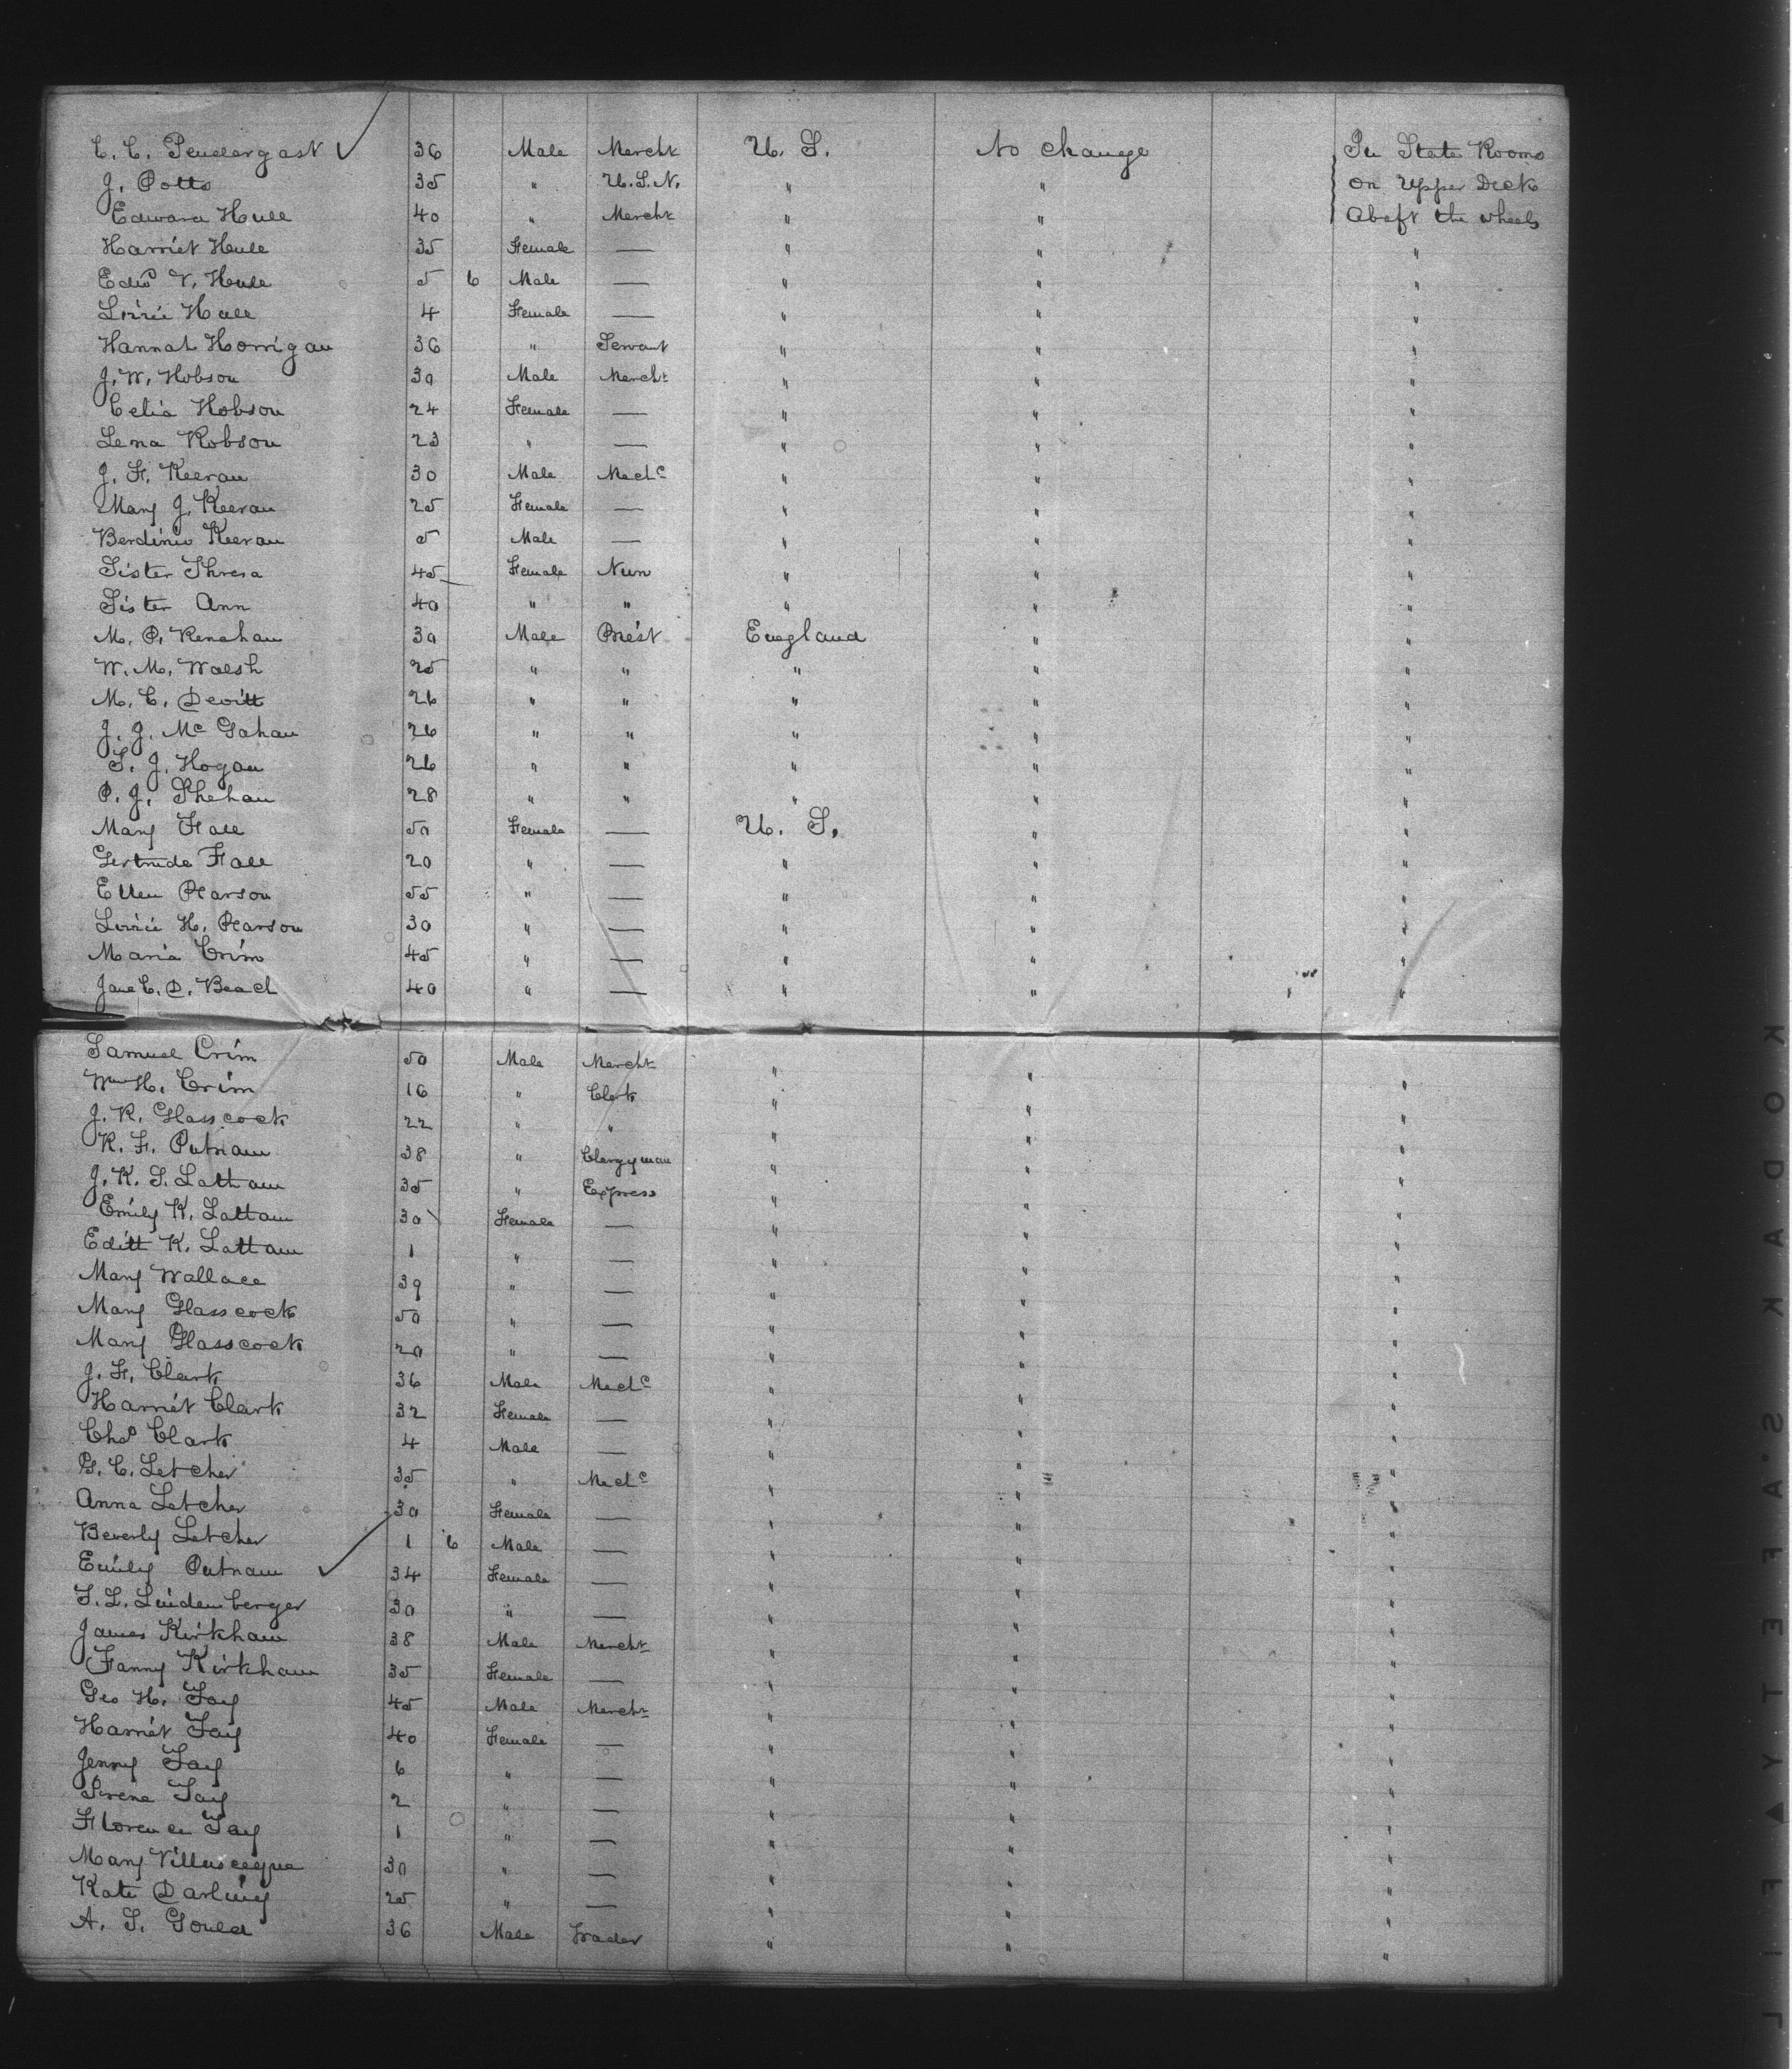 C. C. Pendergast 36 Male Mercht U. S. No change In State Rooms
J. Potts 35 " U.S.N. " " on Upper Deck
Edward Hull 40 " Mercht " " Abaft the wheels
Harriet Hull 35 Female — " " "
Edwd V. Hull 5 6 Male — " " "
Lizzie Hull 4 Female — " " "
Hannah Horrigan 36 " Servant " " "
J. W. Hobson 30 Male Mercht " " "
Celia Hobson 24 Female — " " "
Lena Robson 23 " — " " "
J. F. Keeran 30 Male Mechc " " "
Mary J. Keeran 25 Female — " " "
Keeran 5 Male — " " "
Sister Thresa 45 Female Nun " " "
Sister Ann 40 " " " " "
M. P. Renehan 30 Male Priest England " "
W. M. Walsh 25 " " " " "
M. C. Devitt 26 " " " " "
J. J. Mc Gahan 26 " " " " "
T. J. Hogan 26 " " " " "
P. J. Shehan 28 " " " " "
Mary Fall 50 Female — U. S. " "
Gertrude Fall 20 " — " " "
Ellen Pearson 55 " — " " "
Lizzie H. Pearson 30 " — " " "
Maria Crim 45 " — " " "
Jane C. D. Beach 40 " — " " "
Samuel Crim 50 Male Mercht " " "
Wm H. Crim 16 " Clerk " " "
J. R. Glasscock 22 " " " " "
R. F. Putnam 38 " Clergyman " " "
J. K. S. Latham 35 " Express " " "
Emily K. Latham 30 Female — " " "
Edith K. Latham 1 " — " " "
Mary Wallace 39 " — " " "
Mary Glasscock 50 " — " " "
Mary Glasscock 20 " — " " "
J. F. Clark 36 Male Mechc " " "
Harriet Clark 32 Female — " " "
Chas Clark 4 Male — " " "
G. C. Letcher 35 " Mechc " " "
Anna Letcher 30 Female — " " "
Beverly Letcher 1 6 Male — " " "
Emily Putnam 34 Female — " " "
T. L. Lindenberger 30 " — " " "
James Kirkham 38 Male Mercht " " "
Fanny Kirkham 35 Female — " " "
Geo H. Tay 45 Male Mercht " " "
Harriet Tay 40 Female — " " "
Jenny Tay 6 " — " " "
Irene Tay 2 " — " " "
Florence Tay 1 " — " " "
Mary 30 " — " " "
Kate Darling 25 " — " " "
A. S. Gould 36 Male Trader " " "
KODAK S.AFETY▲FIL